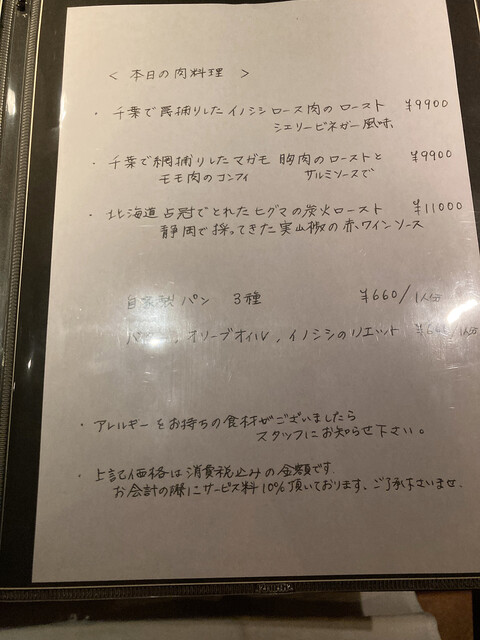 < 本日の肉料理 >
・千葉で罠捕りしたイノシシロース肉のロースト ¥9900
シェリービネガー風味
・千葉で網捕りしたマガモ 胸肉のローストと ¥9900
モモ肉のコンフィ サルミソースで
・北海道占冠でとれたヒグマの炭火ロースト ¥11000
静岡で採ってきた実山椒の赤ワインソース
自家製パン 3種 ¥660/1人分
、オリーブオイル、イノシシのリエット /1人分
・アレルギーをお持ちの食材がございましたら
スタッフにお知らせ下さい。
・上記価格は消費税込みの金額です
お会計の際にサービス料10%頂いております、ご了承下さいませ.